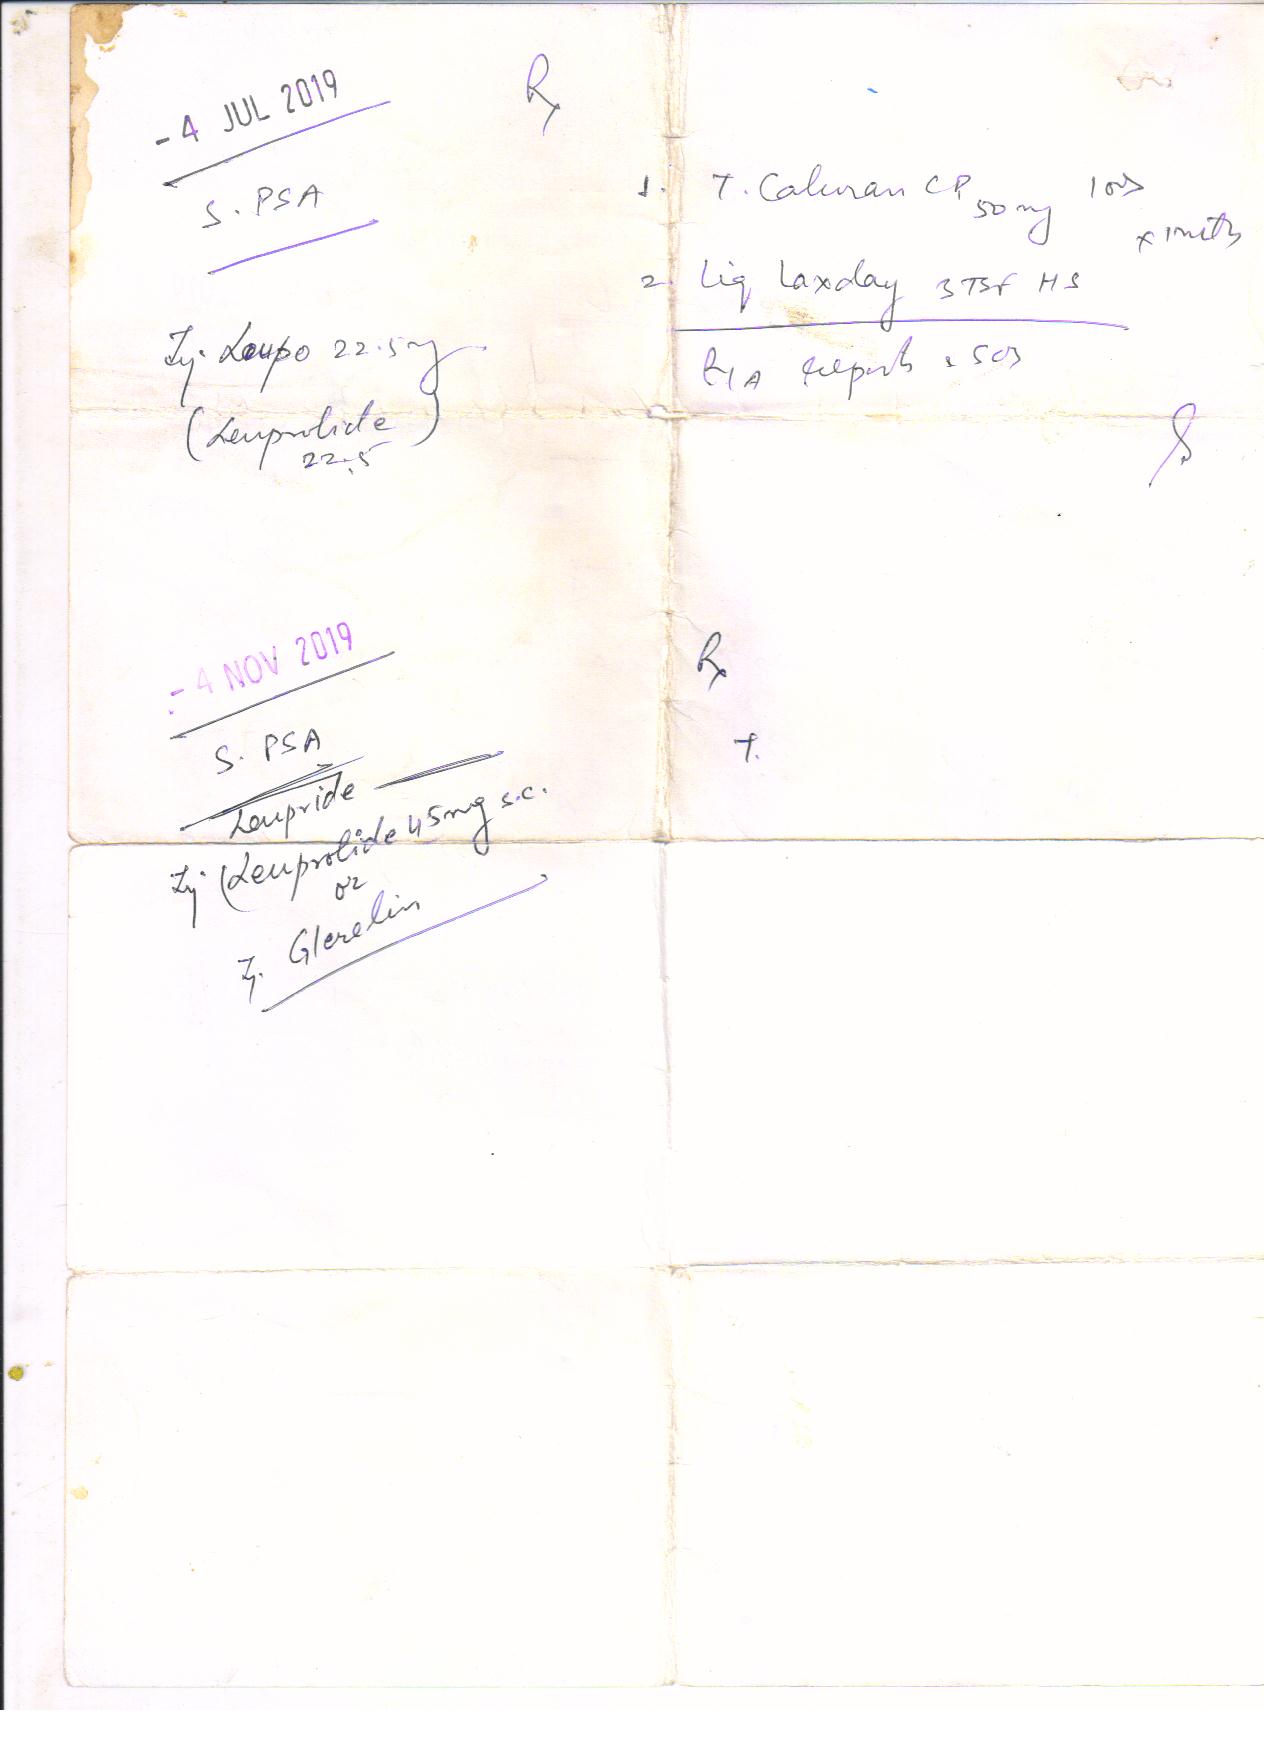 - 4 JUL 2019
S. PSA
Inj. Leupo 22.5mg
(Leuprolide)
22.5
Rx
1. T. Caluran CP 50mg 1 OD
x 1 mth
2. Liq Laxday 3 TSF HS
R/A reports SOS
- 4 NOV 2019
S. PSA
Leupride
Inj (Leuprolide 45mg s.c.
or
Inj. Glerelin
Rx
T.